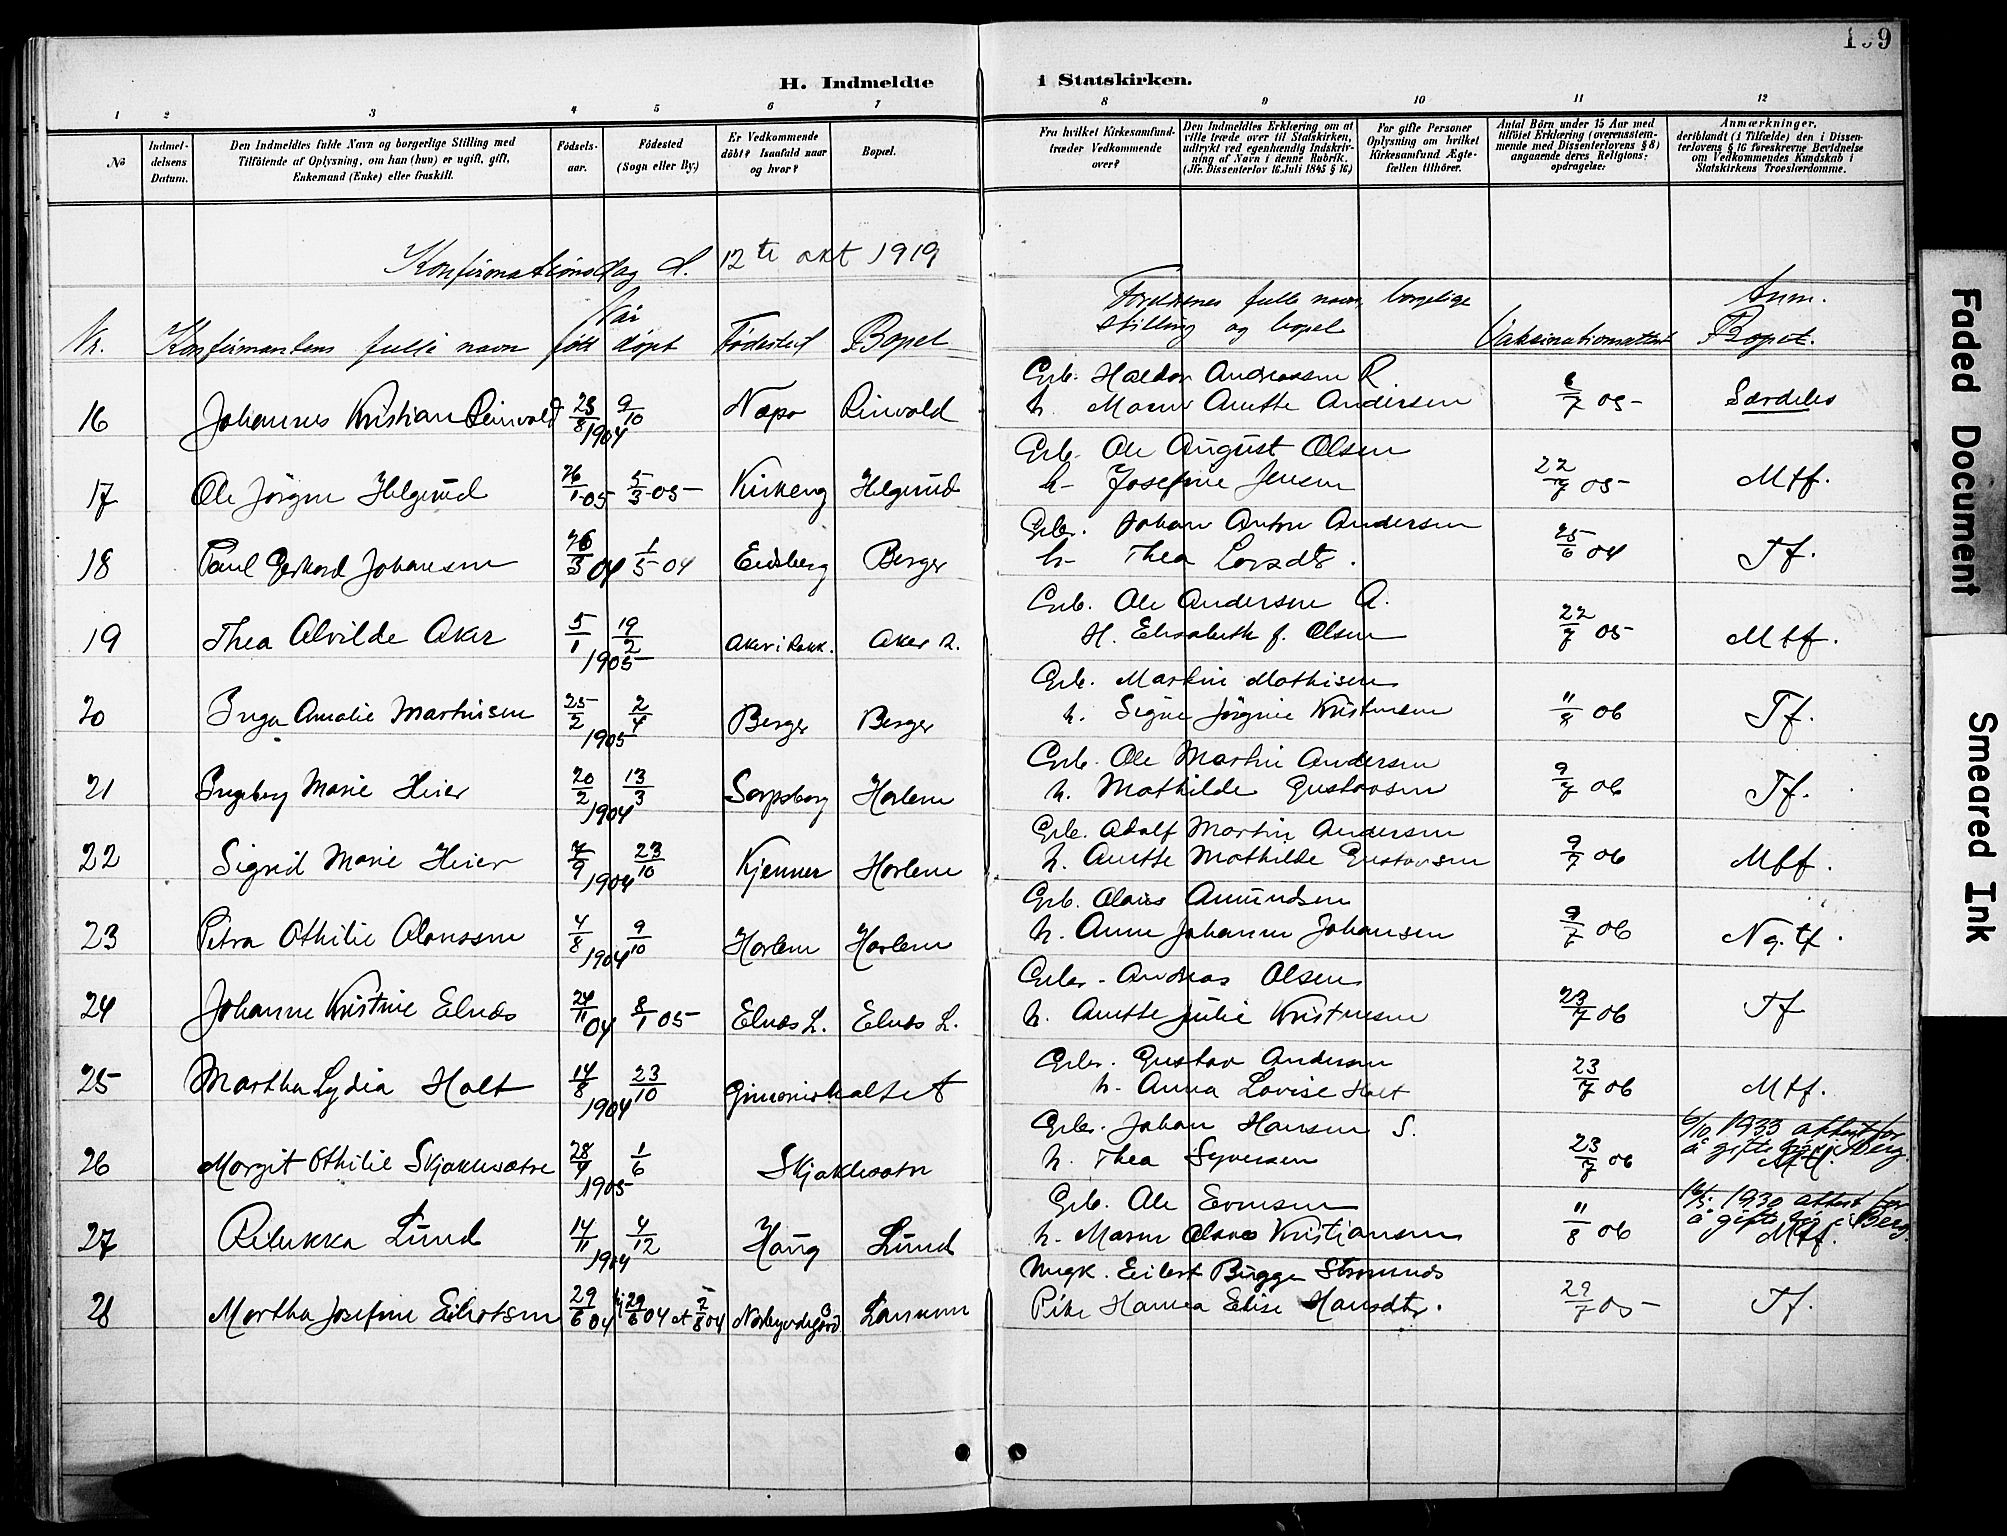 199
H. Indmeldte i Statskirken.
1 2 3 4 5 6 7 8 9 10 11 12
No
Indmeldelsens Datum.
Den Indmeldtes fulde Navn og borgerlige Stilling med
Tilføiende af Oplysning, om han (hun) er ugift, gift,
Enkemand (Enke) eller fraskilt.
Fødselsaar.
Fødested
(Sogn eller By.)
Er Vedkommende
döbt? Isaafald naar
og hvor?
Bopæl.
Fra hvilket Kirkesamfund
træder Vedkommende
over?
Den Indmeldtes Erklæring om at
ville træde over til Statskirken,
udtrykt ved egenhændig Indskrivning af Navn i denne Rubrik.
(Jfr. Dissenterlov 16 Juli 1845 § 16)
For gifte Personer
Oplysning om hvilket
Kirkesamfund Ægtefællen tilhörer.
Antal Börn under 15 Aar med
tilföiet Erklæring (overensstemmende med Dissenterlovens § 8)
angaaende deres Religionsopdragelse:
Anmærkninger,
deriblandt (i Tilfælde) den i Dissenterlovens § 16 foreskrevne Bevidnelse
om Vedkommendes Kundskab i
Statskirkens Troeslærdomme.
Konfirmationsdag d. 12te okt 1919
Nr. Konfirmantens fulle navn født døpt Fødested Bopel
Forældrenes fulle navn, borgelige
stilling og bopel
Vaksinationsattest
Anm.
Bopel.
16 Johannes Kristian Reinvold 23/8 9/10 1904 Næpo Reinvold
Grb. Haldor Andreassen R.
h. Maren Anette Andersen 6/7 05 Særdeles
17 Ole Jörgen Helgerud 26/1 05 5/3 05 Kirkeng Helgerud
Grb. Ole August Olsen
h. Josefine Jensen 22/7 05 Mtf.
18 Paul Gerhard Johansen 26/3 04 1/5 04 Eidsberg Berger
Grbr. Johan Anton Andersen
h. Thea Larsdtr. 25/6 04 Tf.
19 Thea Alvilde Aker 5/1 19/2 1905 Aker i Rakk. Aker R.
Grb. Ole Andersen A.
H. Elisabeth f. Olsen 22/7 05 Mtf.
20 Inga Amalie Martinsen 25/2 2/4 1905 Berger Berger
Grb. Martin Mathisen
h. Signe Jörgine Kristensen 11/8 06 Tf.
21 Ingeborg Marie Heier 20/2 13/3 1904 Sarpsborg Harlem
Grb. Ole Martin Andersen
h. Mathilde Gustavsen 9/7 06 Tf.
22 Sigrid Marie Heier 7/9 23/10 1904 Kjenner Harlem
Grb. Adolf Martin Andersen
h. Anette Mathilde Gustavsen 9/7 06 Mtf.
23 Petra Othilie Olaussen 4/8 9/10 1904 Harlem Harlem
Grb. Olaus Amundsen
h. Anne Johanne Johansen 9/7 06 Ng. tf.
24 Johanne Kristine Elnes 24/11 04 8/1 05 Elnes L. Elnes L.
Grbr. Andreas Olsen
h. Anette Julie Kristensen 23/7 06 Tf
25 Martha Lydia Holt 14/8 23/10 1904
Grbr. Gustav Andersen
h. Anna Lovise Holt 23/7 06 Mtf.
26 Margit Othilie Skjaklesætre 28/4 1/6 1905 Skjaklesætre
Grbr. Johan Hansen S.
h. Thea Syversen 23/7 06
6/10 1933 attest for
å gifte sig i Berg.
Mtf.
27 Rebekka Lund 14/11 4/12 1904 Haug Lund
Grb. Ole Evensen
h. Maren Olava Kristiansen 11/8 06
1930 attest for
å gifte sig i Berg.
Mtf.
28 Martha Josefine Eilertsen 29/6 04 hj 29/6 04 st 7/8 04 Lanum
Ungk. Eilert Bugge Strømnes
Pike Hanna Elise Hansdtr. 29/7 05 Tf.
Faded Document
Smeared Ink